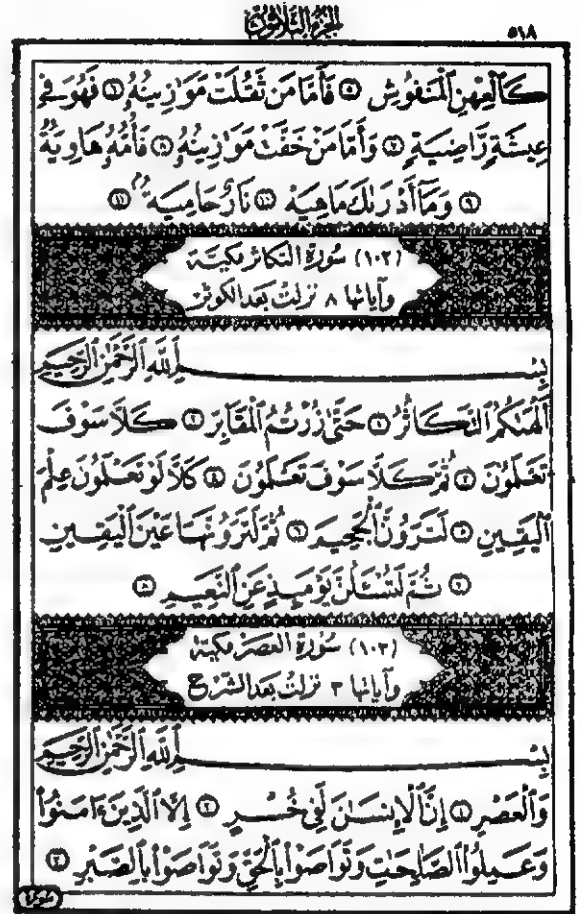 الجزء الثلاثون
٥١٨
كَٱلْعِهْنِ ٱلْمَنفُوشِ ٥ فَأَمَّا مَن ثَقُلَتْ مَوَٰزِينُهُۥ ٦ فَهُوَ فِى
عِيشَةٍ رَّاضِيَةٍ ٧ وَأَمَّا مَنْ خَفَّتْ مَوَٰزِينُهُۥ ٨ فَأُمُّهُۥ هَاوِيَةٌ
٩ وَمَآ أَدْرَىٰكَ مَاهِيَهْ ١٠ نَارٌ حَامِيَةٌ ١١
(١٠٢) سُورَة التكاثر مكيتة
وآياتها ٨ نزلت بعد الكوثر
بِسْمِ ٱللَّهِ ٱلرَّحْمَٰنِ ٱلرَّحِيمِ
أَلْهَىٰكُمُ ٱلتَّكَاثُرُ ١ حَتَّىٰ زُرْتُمُ ٱلْمَقَابِرَ ٢ كَلَّا سَوْفَ
تَعْلَمُونَ ٣ ثُمَّ كَلَّا سَوْفَ تَعْلَمُونَ ٤ كَلَّا لَوْ تَعْلَمُونَ عِلْمَ
ٱلْيَقِينِ ٥ لَتَرَوُنَّ ٱلْجَحِيمَ ٦ ثُمَّ لَتَرَوُنَّهَا عَيْنَ ٱلْيَقِينِ
٧ ثُمَّ لَتُسْـَٔلُنَّ يَوْمَئِذٍ عَنِ ٱلنَّعِيمِ ٨
(١٠٣) سُورَة العصر مكية
وآياتها ٣ نزلت بعد الشرح
بِسْمِ ٱللَّهِ ٱلرَّحْمَٰنِ ٱلرَّحِيمِ
وَٱلْعَصْرِ ١ إِنَّ ٱلْإِنسَٰنَ لَفِى خُسْرٍ ٢ إِلَّا ٱلَّذِينَ ءَامَنُوا۟
وَعَمِلُوا۟ ٱلصَّٰلِحَٰتِ وَتَوَاصَوْا۟ بِٱلْحَقِّ وَتَوَاصَوْا۟ بِٱلصَّبْرِ ٣
سورة